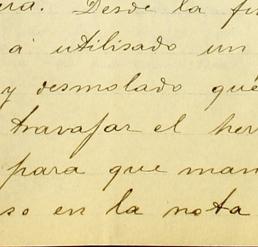 ra. Desde la fi
á utilisado un
y desmolado qué
travajar el her
para que man
so en la nota